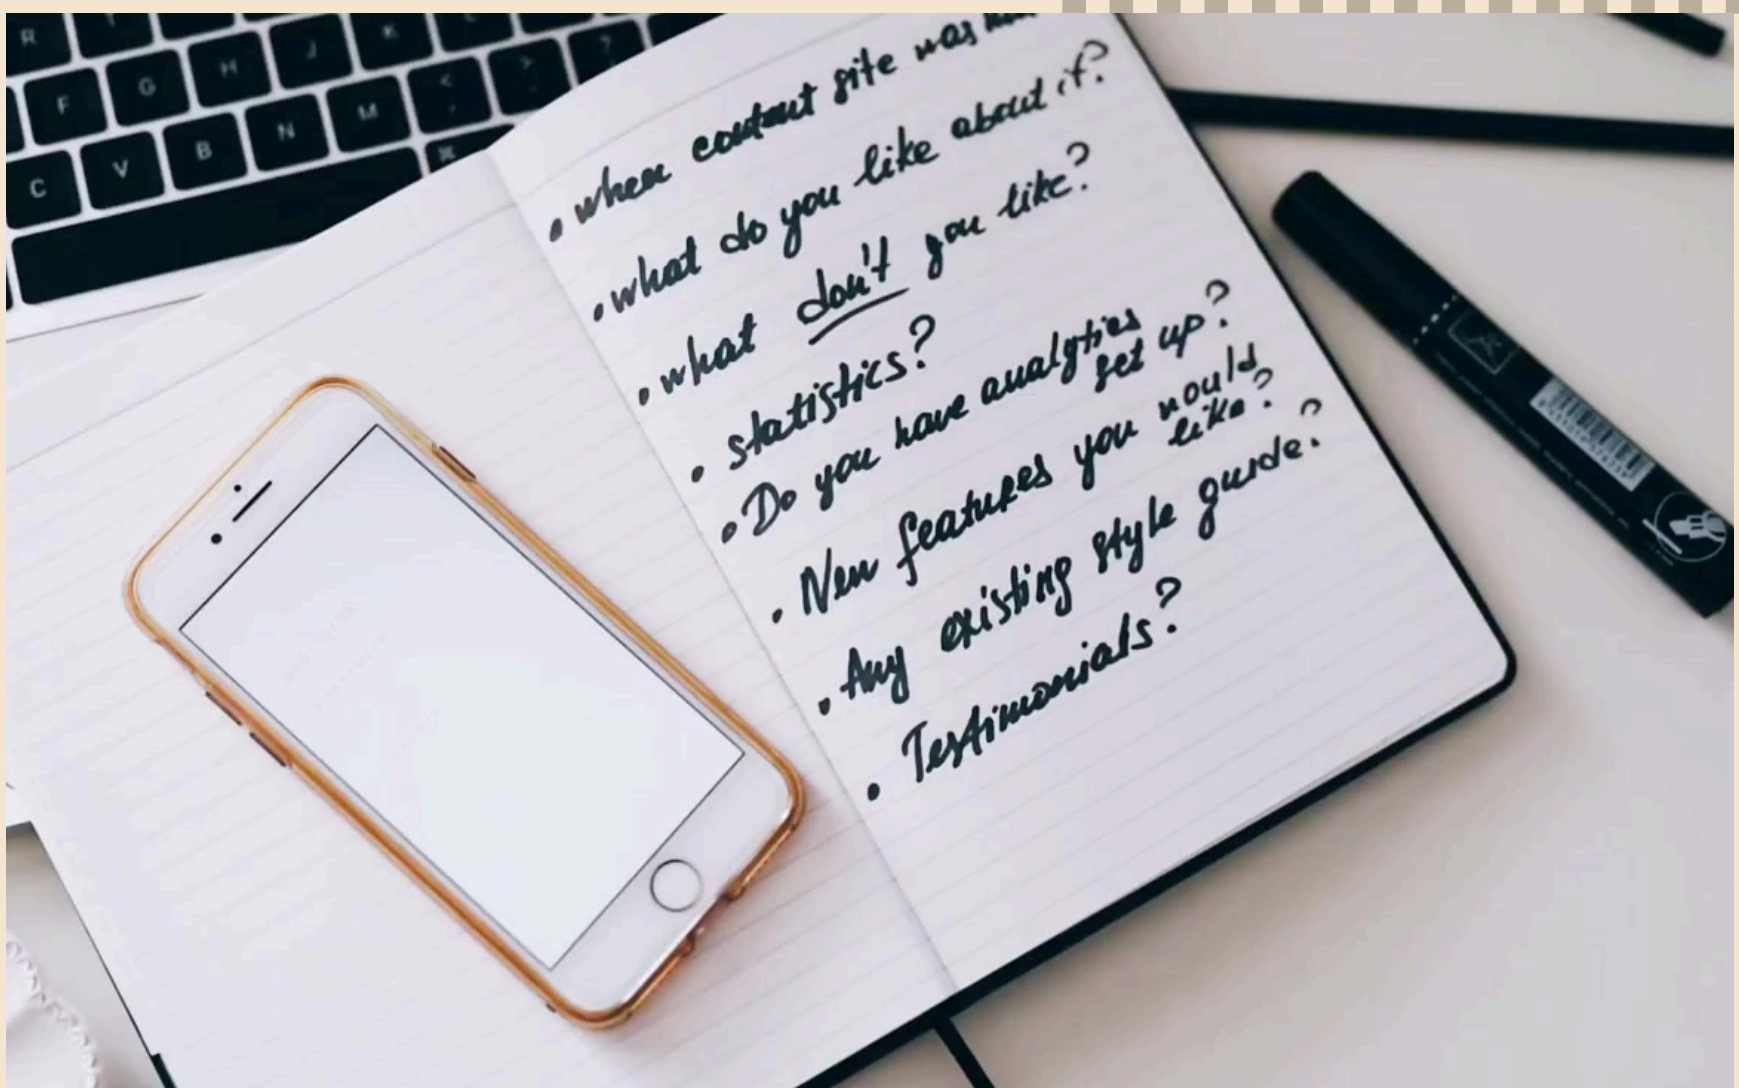 R
F G H J K
C V B N M < , > . ?
⌘
• when content site was
• what do you like about it?
• what don't you like?
• statistics?
• Do you have analytics
set up?
• New features you would
like?
• Any existing style guide?
• Testimonials?